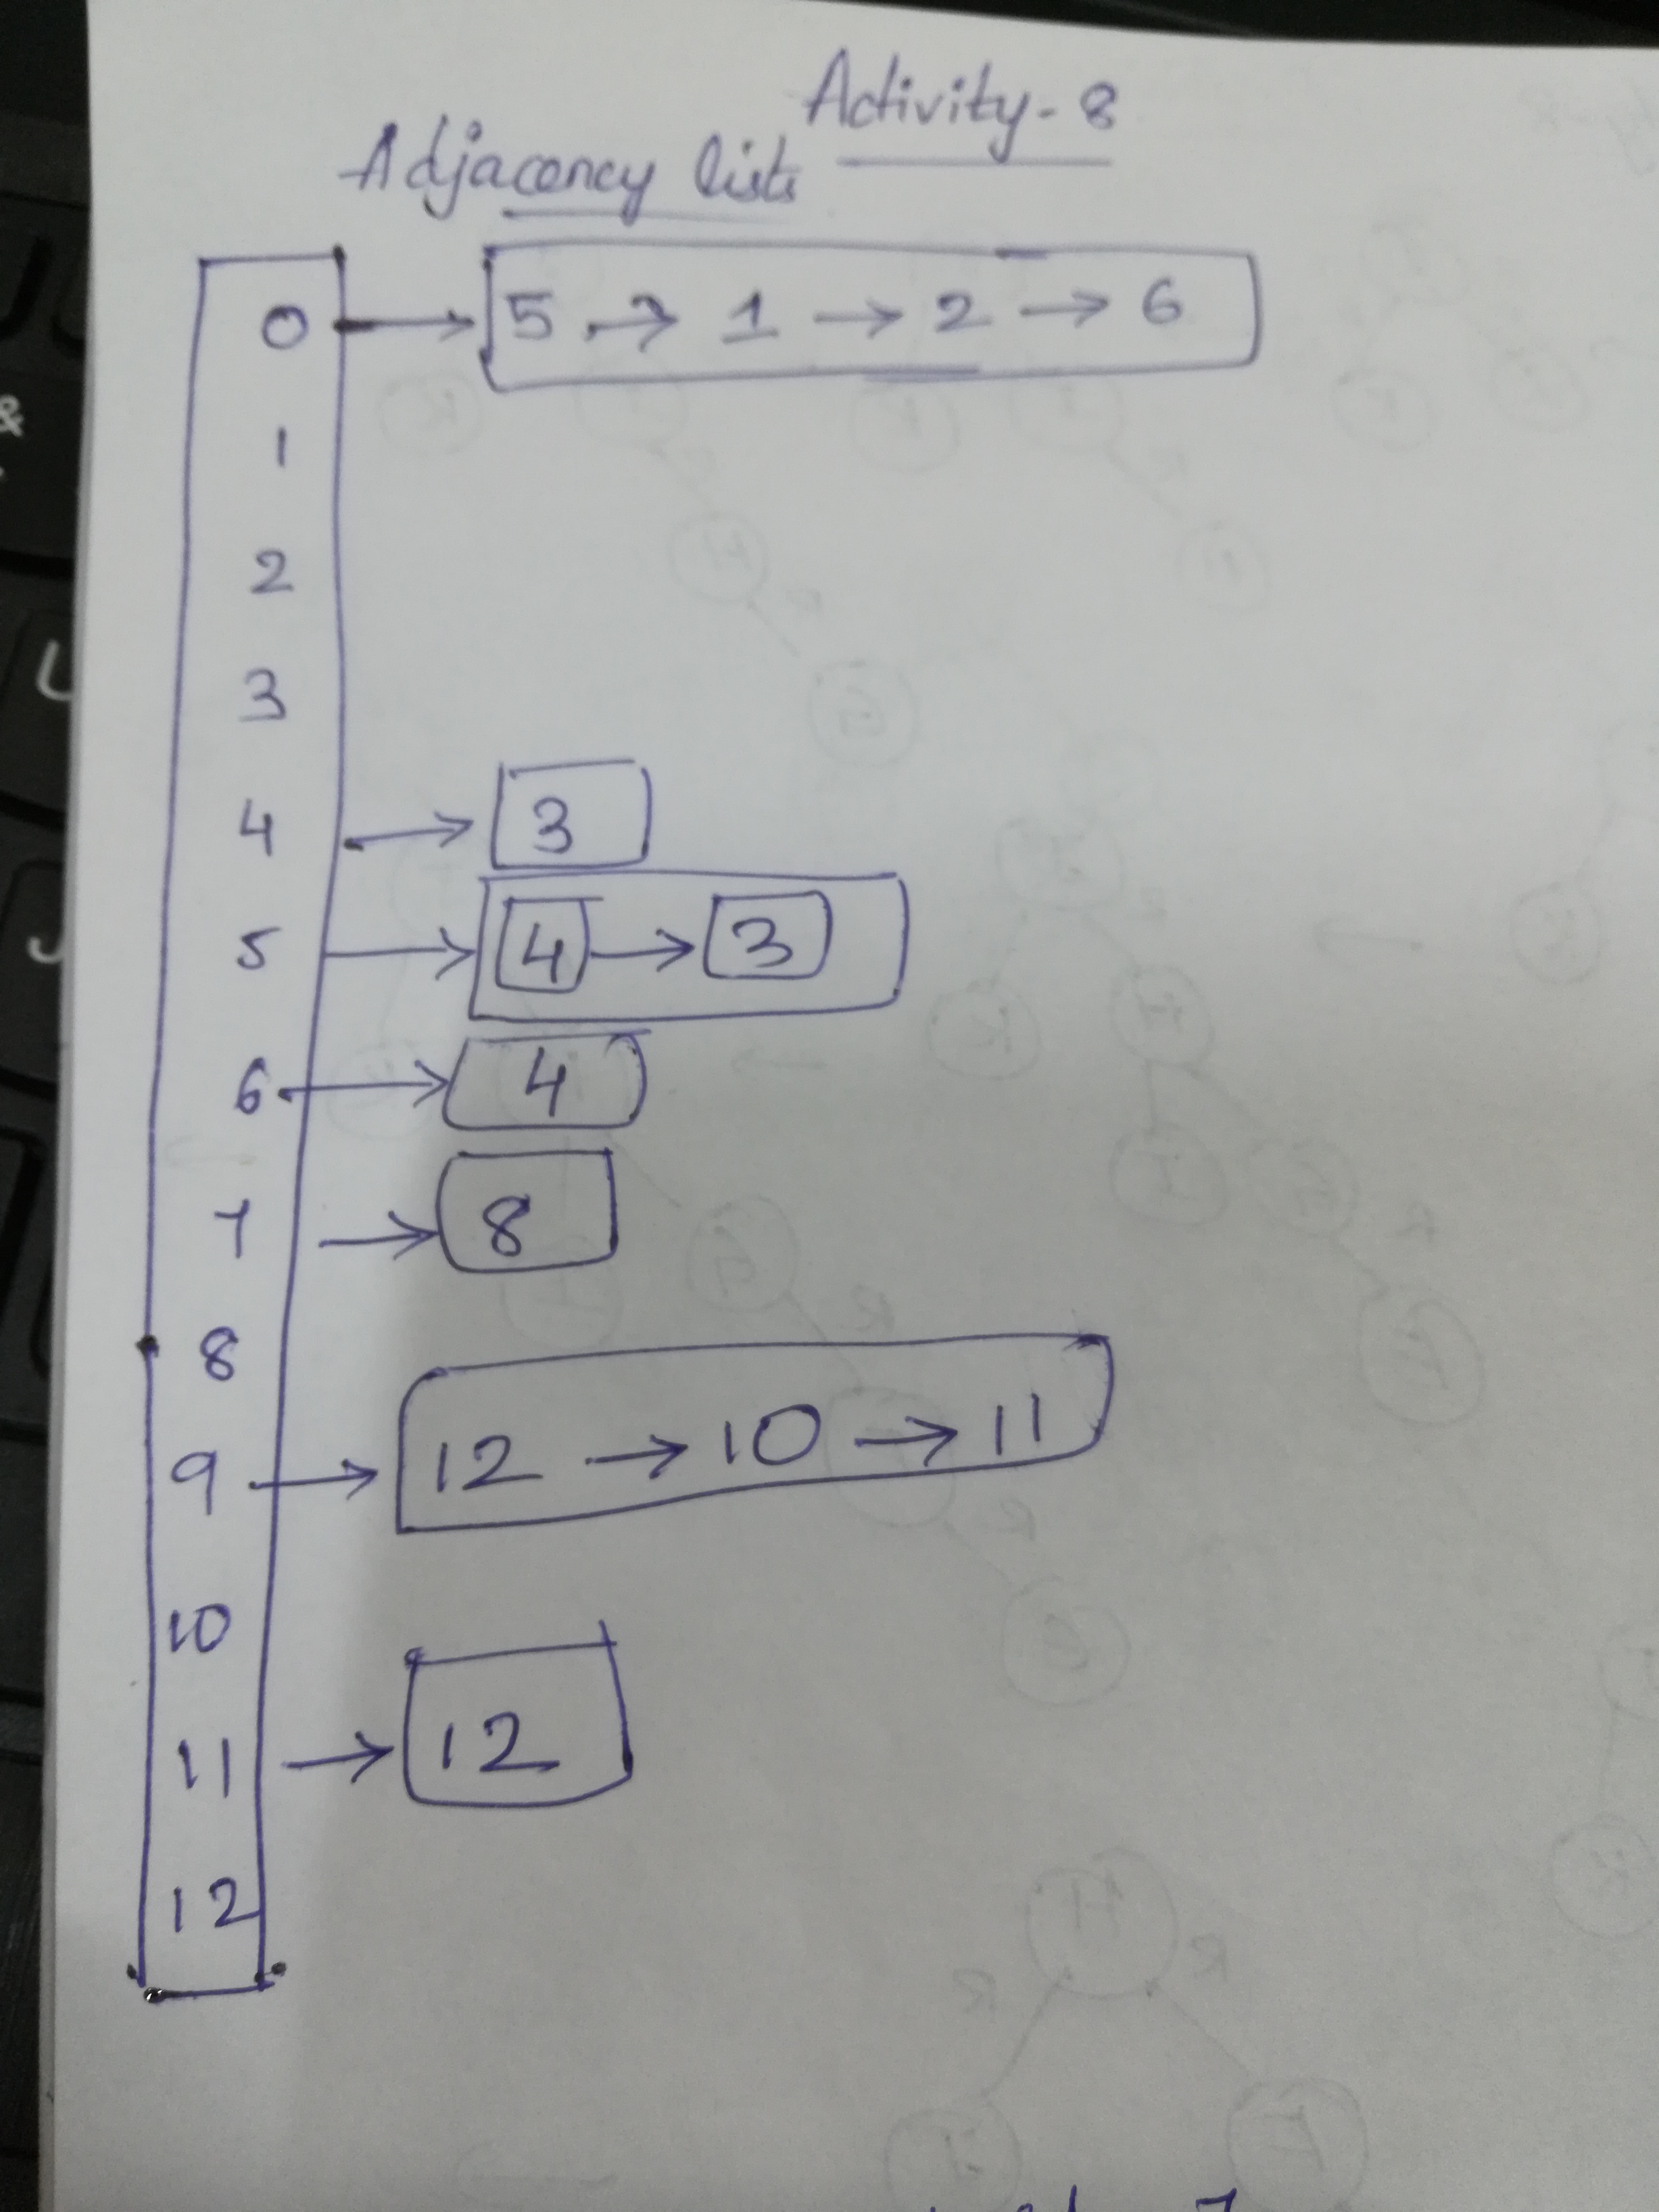 Activity-8
Adjacency lists
0 → 5 → 1 → 2 → 6
1
2
3
4 → 3
5 → 4 → 3
6 → 4
7 → 8
8
9 → 12 → 10 → 11
10
11 → 12
12